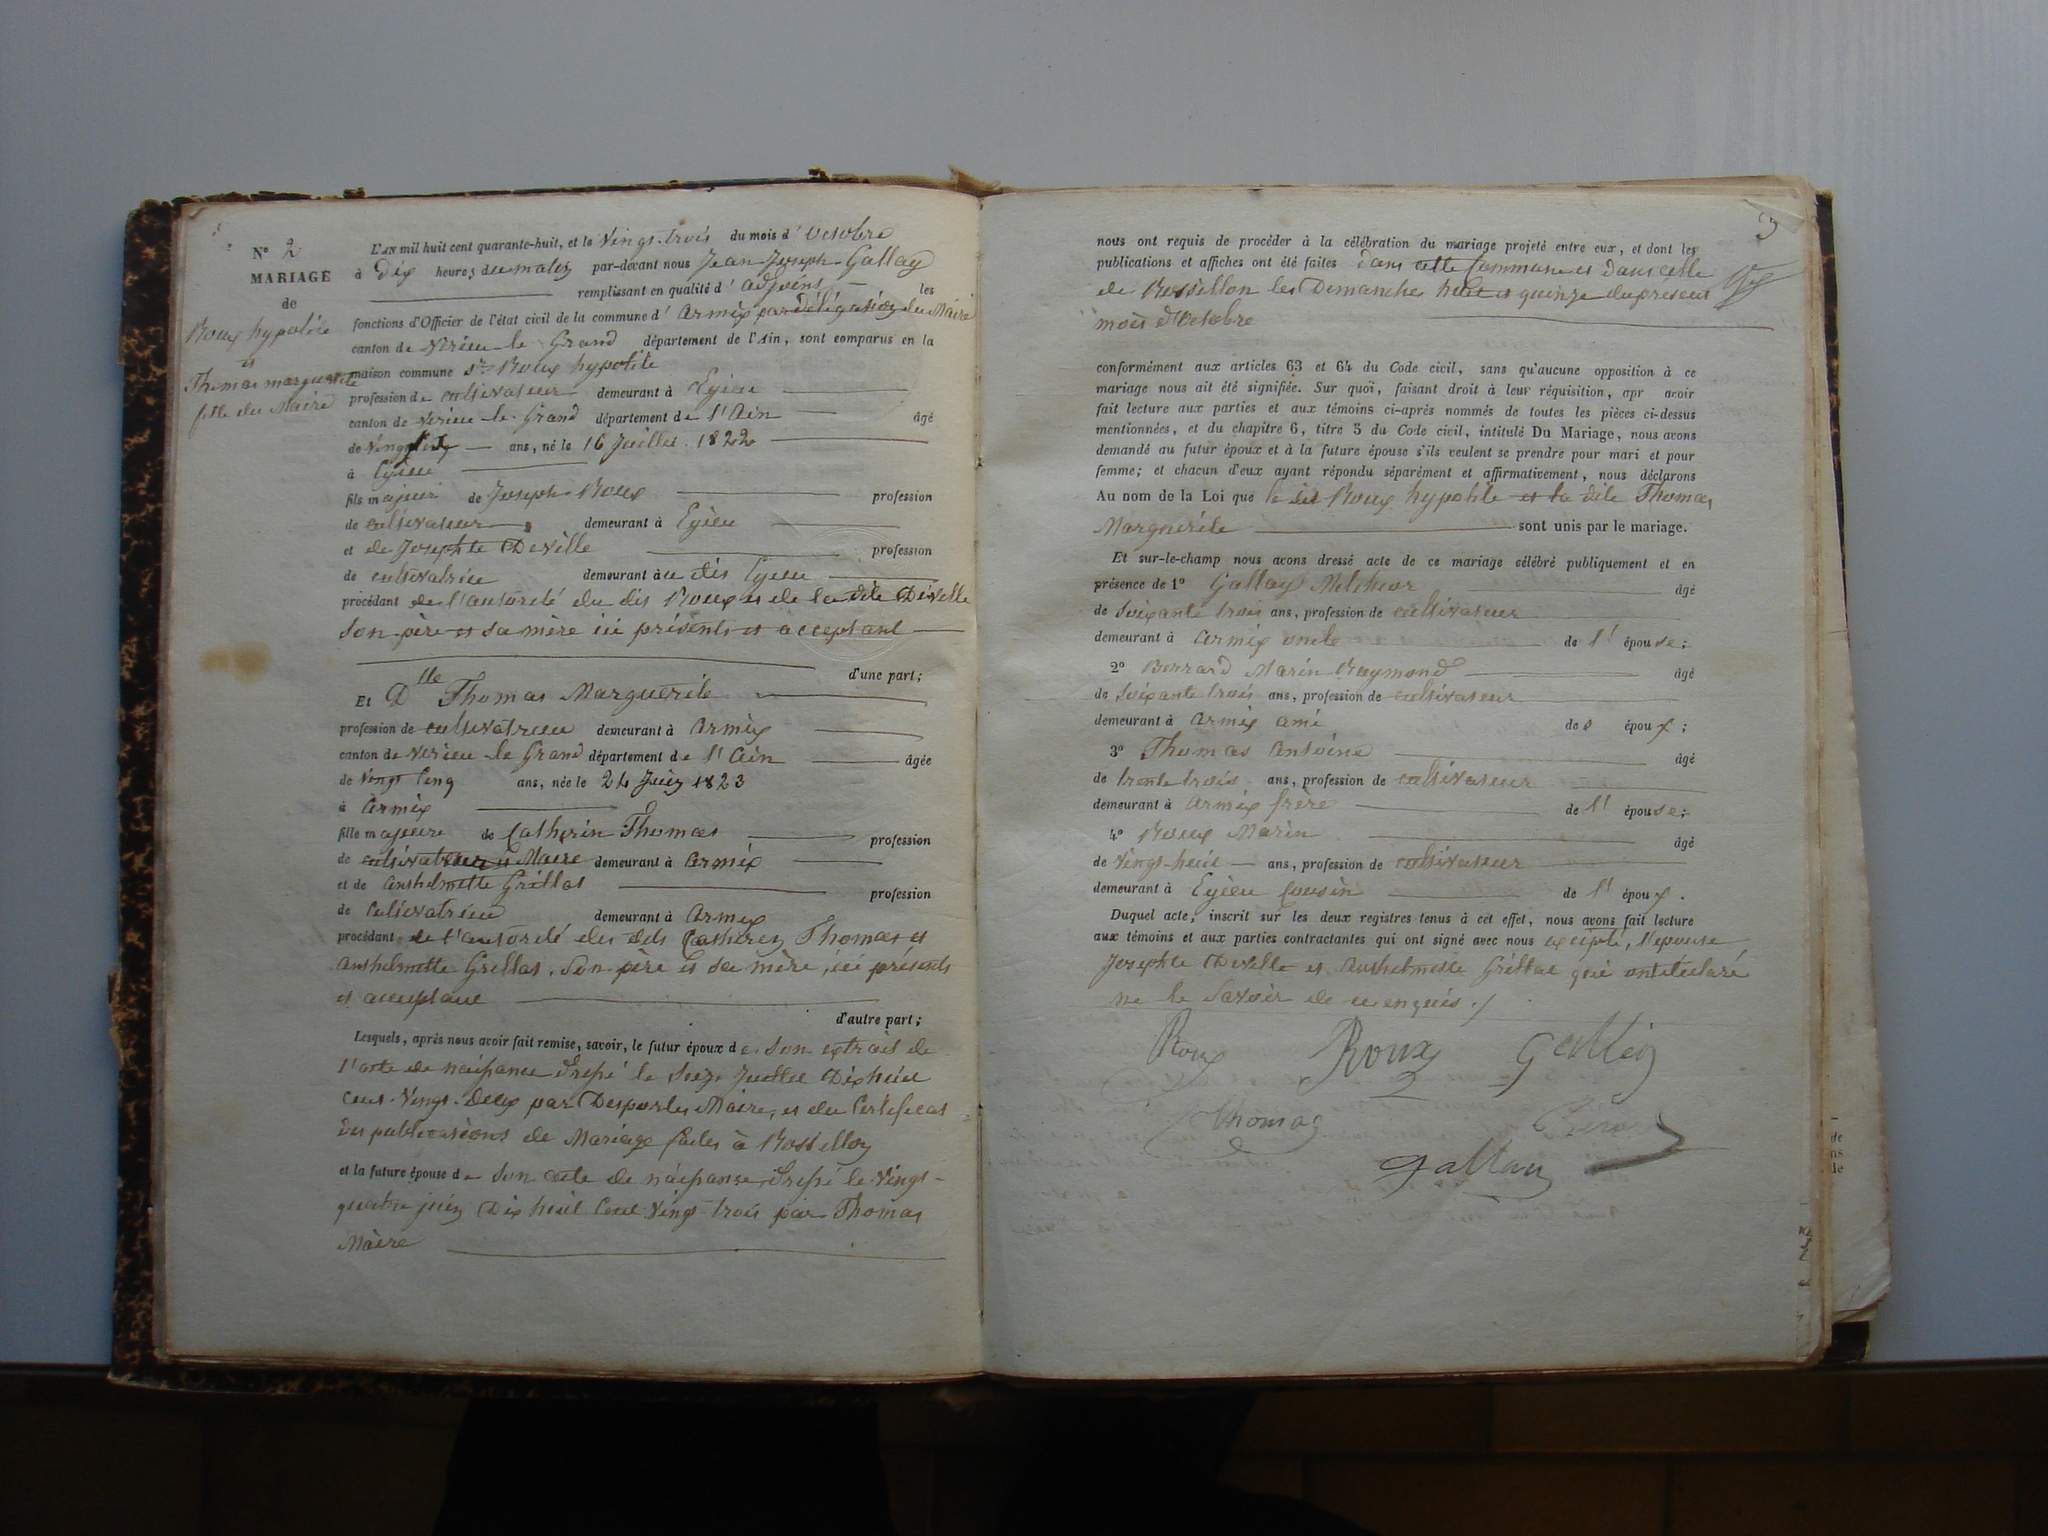 N° 2
MARIAGE
de
Roux hypolite
et
Thomas marguerite
fille du Maire
L'AN mil huit cent quarante-huit, et le Vingt-trois du mois d'octobre
à dix heures du matin par-devant nous Jean Joseph Gallay
remplissant en qualité d'adjoint les
fonctions d'Officier de l'état civil de la commune d'Armix par délégation du Maire
canton de Virieu le Grand département de l'Ain, sont comparus en la
maison commune Sr Roux hypolite
profession de cultivateur demeurant à Egieu
canton de Virieu le Grand département de l'Ain âgé
de Vingt six ans, né le 16 Juillet 1822
à Egieu
fils majeur de Joseph Roux profession
de cultivateur demeurant à Egieu
et de Josephte Deville profession
de cultivatrice demeurant à u dit Egieu
procédant de l'autorité du dit Roux et de la dite Deville
Son père et sa mère ici présents et acceptant
d'une part;
Et Dlle Thomas Marguerite
profession de cultivatrice demeurant à Armix
canton de Virieu le Grand département de l'Ain âgée
de Vingt Cinq ans, née le 24 Juin 1823
à Armix
fille majeure de Catherin Thomas profession
de cultivateur et Maire demeurant à Armix
et de Anthelmette Grillat profession
de Cultivatrice demeurant à Armix
procédant de l'autorité des dits Catherin Thomas et
Anthelmette Grillat, Son père et sa mère, ici présents
et acceptant
d'autre part;
Lesquels, après nous avoir fait remise, savoir, le futur époux de son extrait de
l'acte de naissance Dressé le Seize Juillet Dix huit
Cent Vingt Deux par Desportes Maire, et du Certificat
des publications de Mariage faites à Rossillon
et la future épouse de Son acte de naissance Dressé le Vingt-
quatre juin Dix huit Cent Vingt trois par Thomas
Maire
3
nous ont requis de procéder à la célébration du mariage projeté entre eux, et dont les
publications et affiches ont été faites dans cette Commune et dans celle
de Rossillon les Dimanches huit et quinze du présent
mois d'Octobre
conformément aux articles 63 et 64 du Code civil, sans qu'aucune opposition à ce
mariage nous ait été signifiée. Sur quoi, faisant droit à leur réquisition, apr avoir
fait lecture aux parties et aux témoins ci-après nommés de toutes les pièces ci-dessus
mentionnées, et du chapitre 6, titre 5 du Code civil, intitulé Du Mariage, nous avons
demandé au futur époux et à la future épouse s'ils veulent se prendre pour mari et pour
femme; et chacun d'eux ayant répondu séparément et affirmativement, nous déclarons
Au nom de la Loi que le dit Roux hypolite et la dite Thomas
Marguerite sont unis par le mariage.
Et sur-le-champ nous avons dressé acte de ce mariage célébré publiquement et en
présence de 1° Gallay Melchior âgé
de Soixante trois ans, profession de cultivateur
demeurant à Armix oncle de l'épouse;
2° Berrard Marin Raymond âgé
de Soixante trois ans, profession de cultivateur
demeurant à Armix ami des époux;
3° Thomas Antoine âgé
de trente trois ans, profession de cultivateur
demeurant à Armix frère de l'épouse;
4° Roux Marin âgé
de Vingt-huit ans, profession de cultivateur
demeurant à Egieu Cousin de l'époux.
Duquel acte, inscrit sur les deux registres tenus à cet effet, nous avons fait lecture
aux témoins et aux parties contractantes qui ont signé avec nous excepté, l'épouse
Josephte Deville et Anthelmette Grillat qui ont déclaré
ne le Savoir de ce enquis./
Roux Roux
Thomas
Gallay